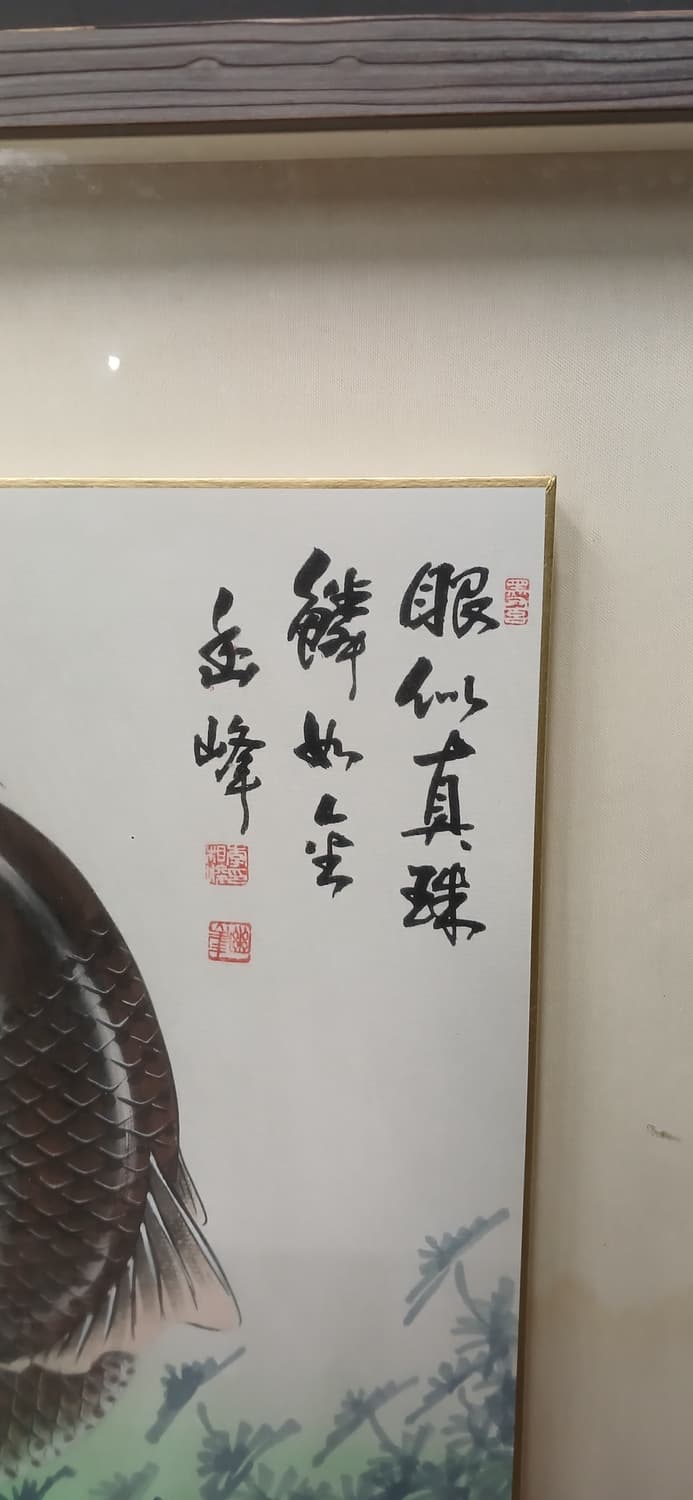 眼似真珠
鱗如金
岳峰